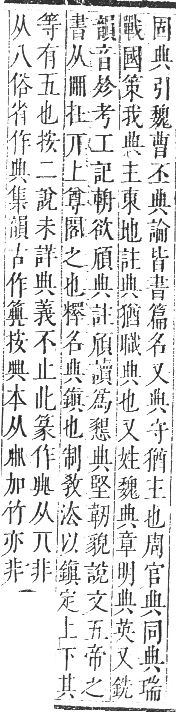 固典引魏曹丕典論皆書篇名又典守猶主也周官典同典瑞
戰國策我典主東地註典猶職典也又姓魏典韋明典英又銑
韻音㐱考工記輈欲頎典註頎讀爲懇典堅韌貌說文五帝之
書从冊在丌上尊閣之也釋名典鎭也制敎法以鎭定上下其
等有五也按二說未詳典義不止此篆作𠔓从丌非
从八俗省作典集韻古作籅按典本从𠕋加竹亦非